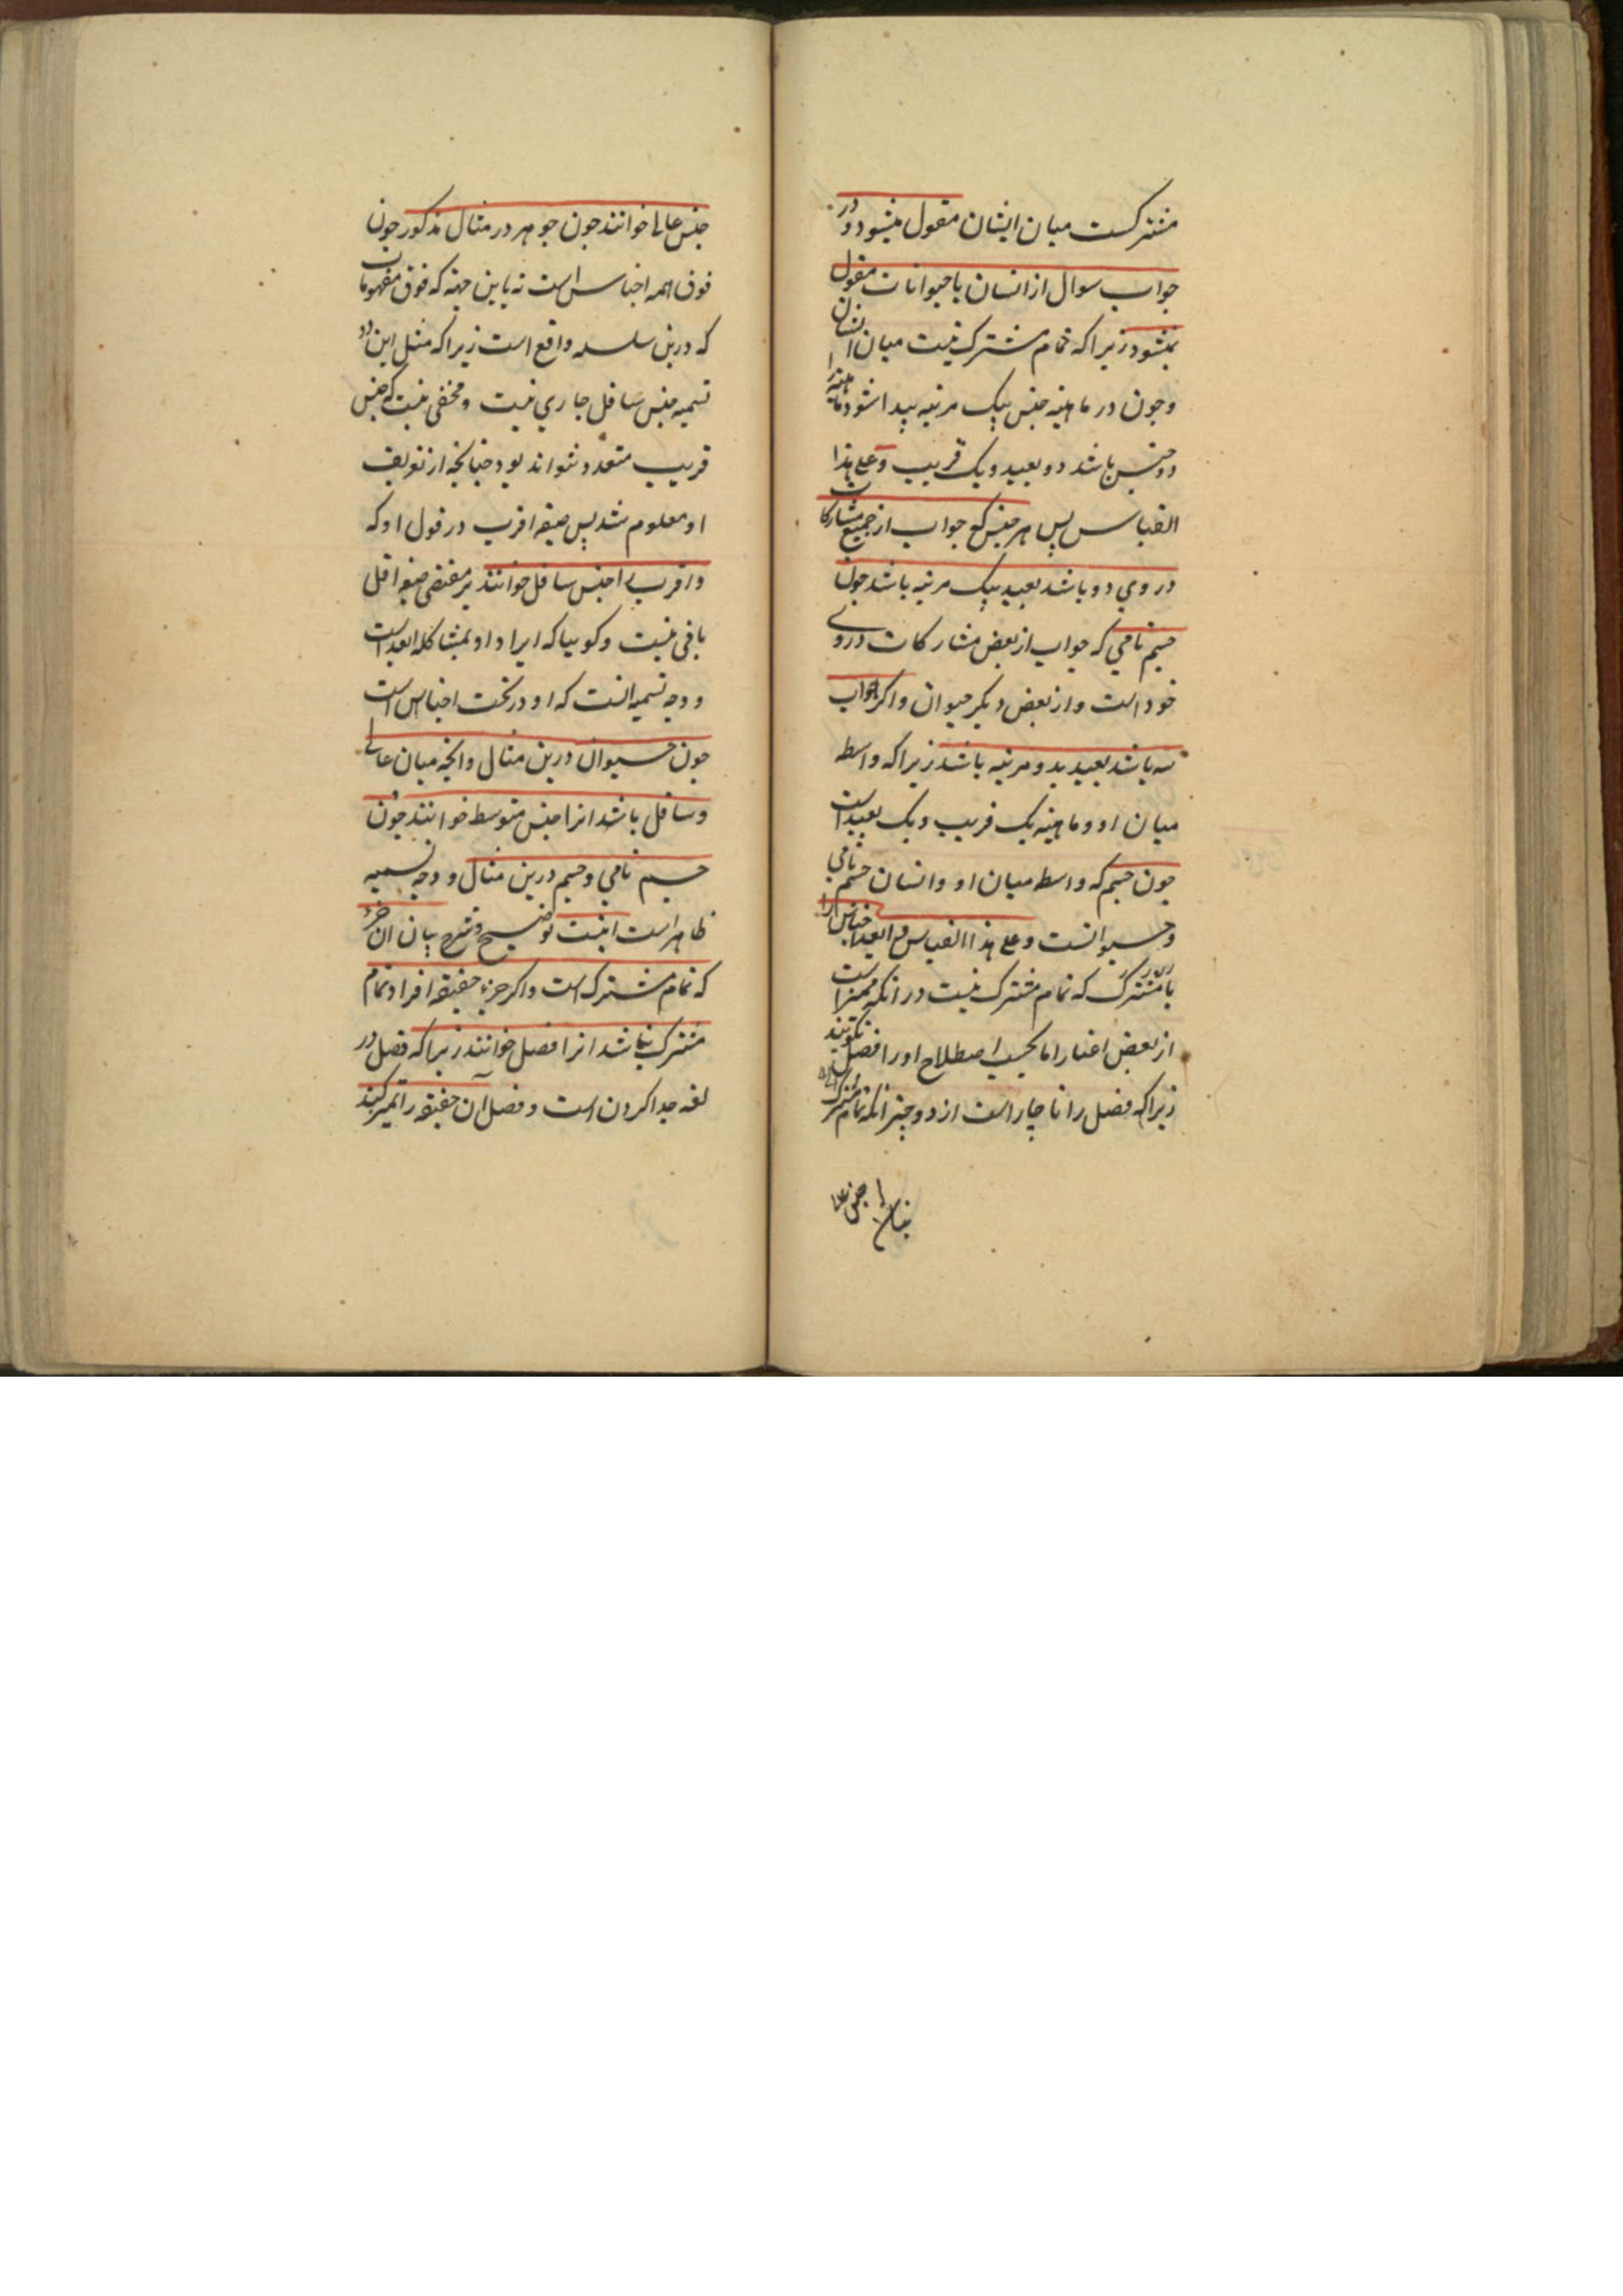 مشترکست میان ایشان مقول میشود و در
جواب سوال از انسان با حیوانات مقول
نمیشود زیرا که تمام مشترک نیست میان انسان
و چون در ماهیته جنس بیک مرتبه پیدا شود ماهیته را
دو جنس باشد دو بعید و یک قریب و علی هذا
القیاس پس هر جنس که جواب از جمیع مشارکات
در وی دو باشد بعید بیک مرتبه باشد چون
جسم نامی که جواب از بعض مشارکات در وی
خود است و از بعض دیکر حیوان و اکر جواب
سه باشد بعید بدو مرتبه باشد زیرا که واسطه
میان او و ماهیته یک قریب و یک بعید است
چون جسم که واسطه میان او و انسان جسم نامی
و حیوانست و علی هذا القیاس و ابعد اجناس را
با مشترک که تمام مشترک نیست در انکه ممیز است
از بعض اغیار اما بحسب اصطلاح او را فصل نکویند
زیرا که فصل را ناچار است از دو چیز انکه تمام مشترک
جنس عالی خوانند چون جوهر در مثال مذکور چون
فوق همه اجناس است نه باین جهته که فوق مفهومات
که درین سلسله واقع است زیرا که مثل این در
تسمیه جنس سافل جاری نیست و مخفی نیست که جنس
قریب متعدد نتواند بود چنانچه از تعریف
او معلوم شد پس صیغه اقرب در قول او که
و اقرب را جنس سافل خوانند بر مقتضی صیغه اقل
باقی نیست و کوییا که ایراد او بمشاکله ابعد است
و وجه تسمیه انست که او در تحت اجناس است
چون حیوان درین مثال و انچه میان عالی
و سافل باشد انرا جنس متوسط خوانند چون
جسم نامی و جسم درین مثال و وجه تسمیه
ظاهر است اینست توضیح و شرح بیان ان جزء
که تمام مشترک است و اکر جزء حقیقه افراد تمام
مشترک نباشد انرا فصل خوانند زیرا که فصل در
لغه جدا کردن است و فصل ان حقیقه را تمیز کند